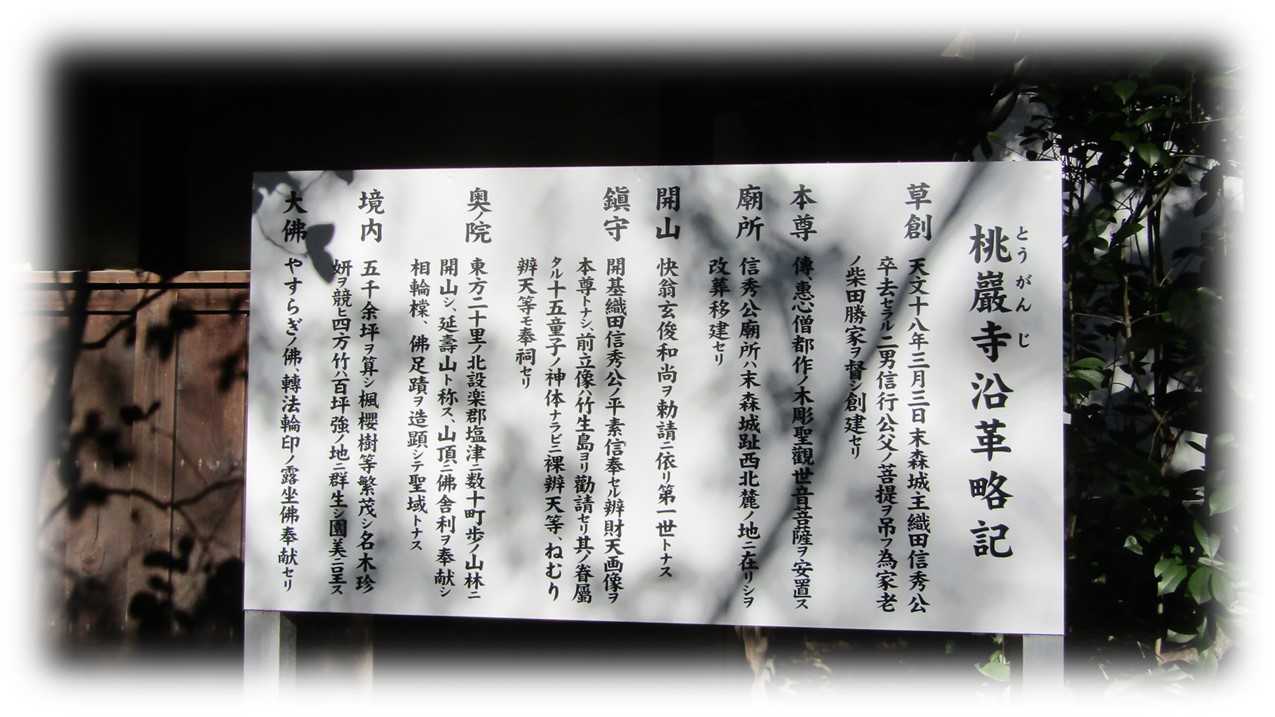 とうがんじ
桃巖寺沿革略記
草創
天文十八年三月三日末森城主織田信秀公
卒去セラル二男信行公父ノ菩提ヲ吊ヲ為家老
ノ柴田勝家ヲ督シ創建セリ
本尊
傳、惠心僧都作ノ木彫聖觀世音菩薩ヲ安置ス
廟所
信秀公廟所ハ末森城趾西北麓ノ地ニ在リシヲ
改葬移建セリ
開山
快翁玄俊和尚ヲ勅請ニ依リ第一世トナス
鎭守
開基織田信秀公ノ平素信奉セル辨財天画像ヲ
本尊トナシ、前立像ハ竹生島ヨリ勸請セリ其ノ眷屬
タル十五童子ノ神体ナラビニ裸辨天等、ねむり
辨天等モ奉祠セリ
奥ノ院
東方二十里ノ北設楽郡塩津ニ数十町歩ノ山林ニ
開山シ、延壽山ト称ス、山頂ニ佛舎利ヲ奉献シ
相輪樘、佛足蹟ヲ造顕シテ聖域トナス
境内
五千余坪ヲ算シ楓櫻樹等繁茂シ名木珍
妍ヲ競ヒ四方竹ハ百坪強ノ地ニ群生シ園美ニ呈ス
大佛
やすらぎノ佛、轉法輪印ノ露坐佛奉献セリ